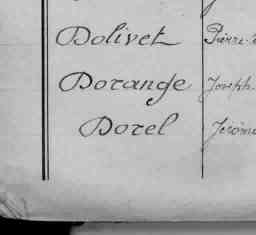 Dolivet Pierre
Dorange Joseph
Dorel Jérôme